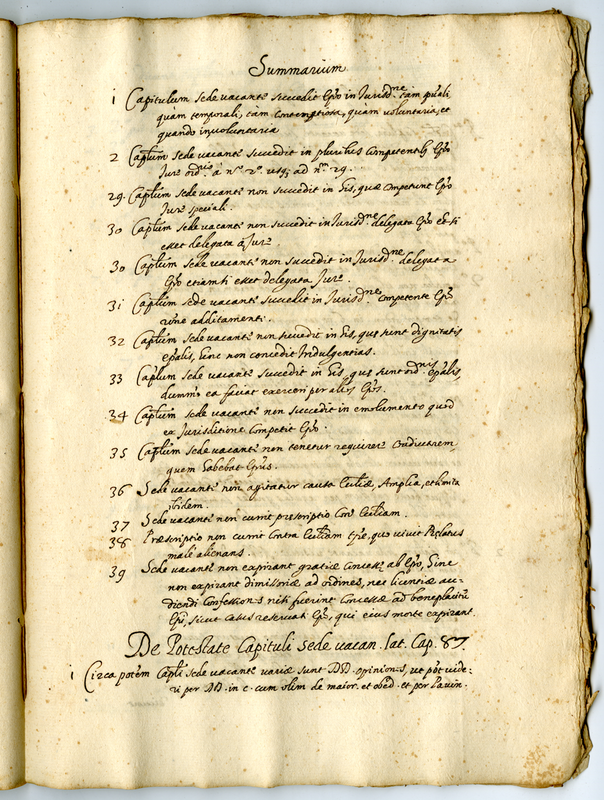 Summarium
1 Capitulum sede vacante succedit Epo in Jurisdne. tam spuali
quam temporali, tam contemptiosa, quam voluntaria, et
quando involuntaria
2 Caplum sede vacante succedit in pluribus competentib Epo
Jure ordrio à nº. 2º. usq; ad nm. 29.
29. Caplum sede vacante non succedit in his, quæ competunt Epo
Jure speciali.
30 Caplum sede vacante non succedit in Jurisdne. delegata Epo etsi
esset delegata à Jure.
30 Caplum sede vacante non succedit in Jurisdne. delegata
Epo etiamsi esset delegata Jure.
31 Caplum sede vacante succedit in Jurisdne. competente Epo
sine additamento.
32 Caplum sede vacante non succedit in his, que sunt dignitatis
epalis, hinc non concedit Indulgentias.
33 Caplum sede vacante succedit in his, que sunt ordnis epalis,
dummo ea faciat exerceri per alios Epos.
34 Caplum sede vacante non succedit in emolumento quod
ex Jurisditione competit Epo.
35 Caplum sede vacante non tenetur requirere Coadiutorem,
quem habebat Epus.
36 Sede vacante non agitatur causa Eccliæ, Amplia, et limita
ibidem.
37 Sede vacante non currit prescriptio Cona Eccliam.
38 Præscriptio non currit contra Eccliam tpre, quo vivit Prelatus
male alienans.
39 Sede vacante non expirant gratiæ concessæ ab Epo, Sine
non expirant dimissoriæ ad ordines, nec licentiæ au-
diendi Confessiones nisi fuerint concessæ ad beneplacitum
Epi, sicut casus reservati Epo, qui eius morte expirant.
De Potestate Capituli sede vacan. lat. Cap. 87.
1 Circa potem Capli sede vacante variæ sunt DD. opiniones, ut pot vide-
ri per DD. in c. cum olim de maior. et obed. et per Pavin.